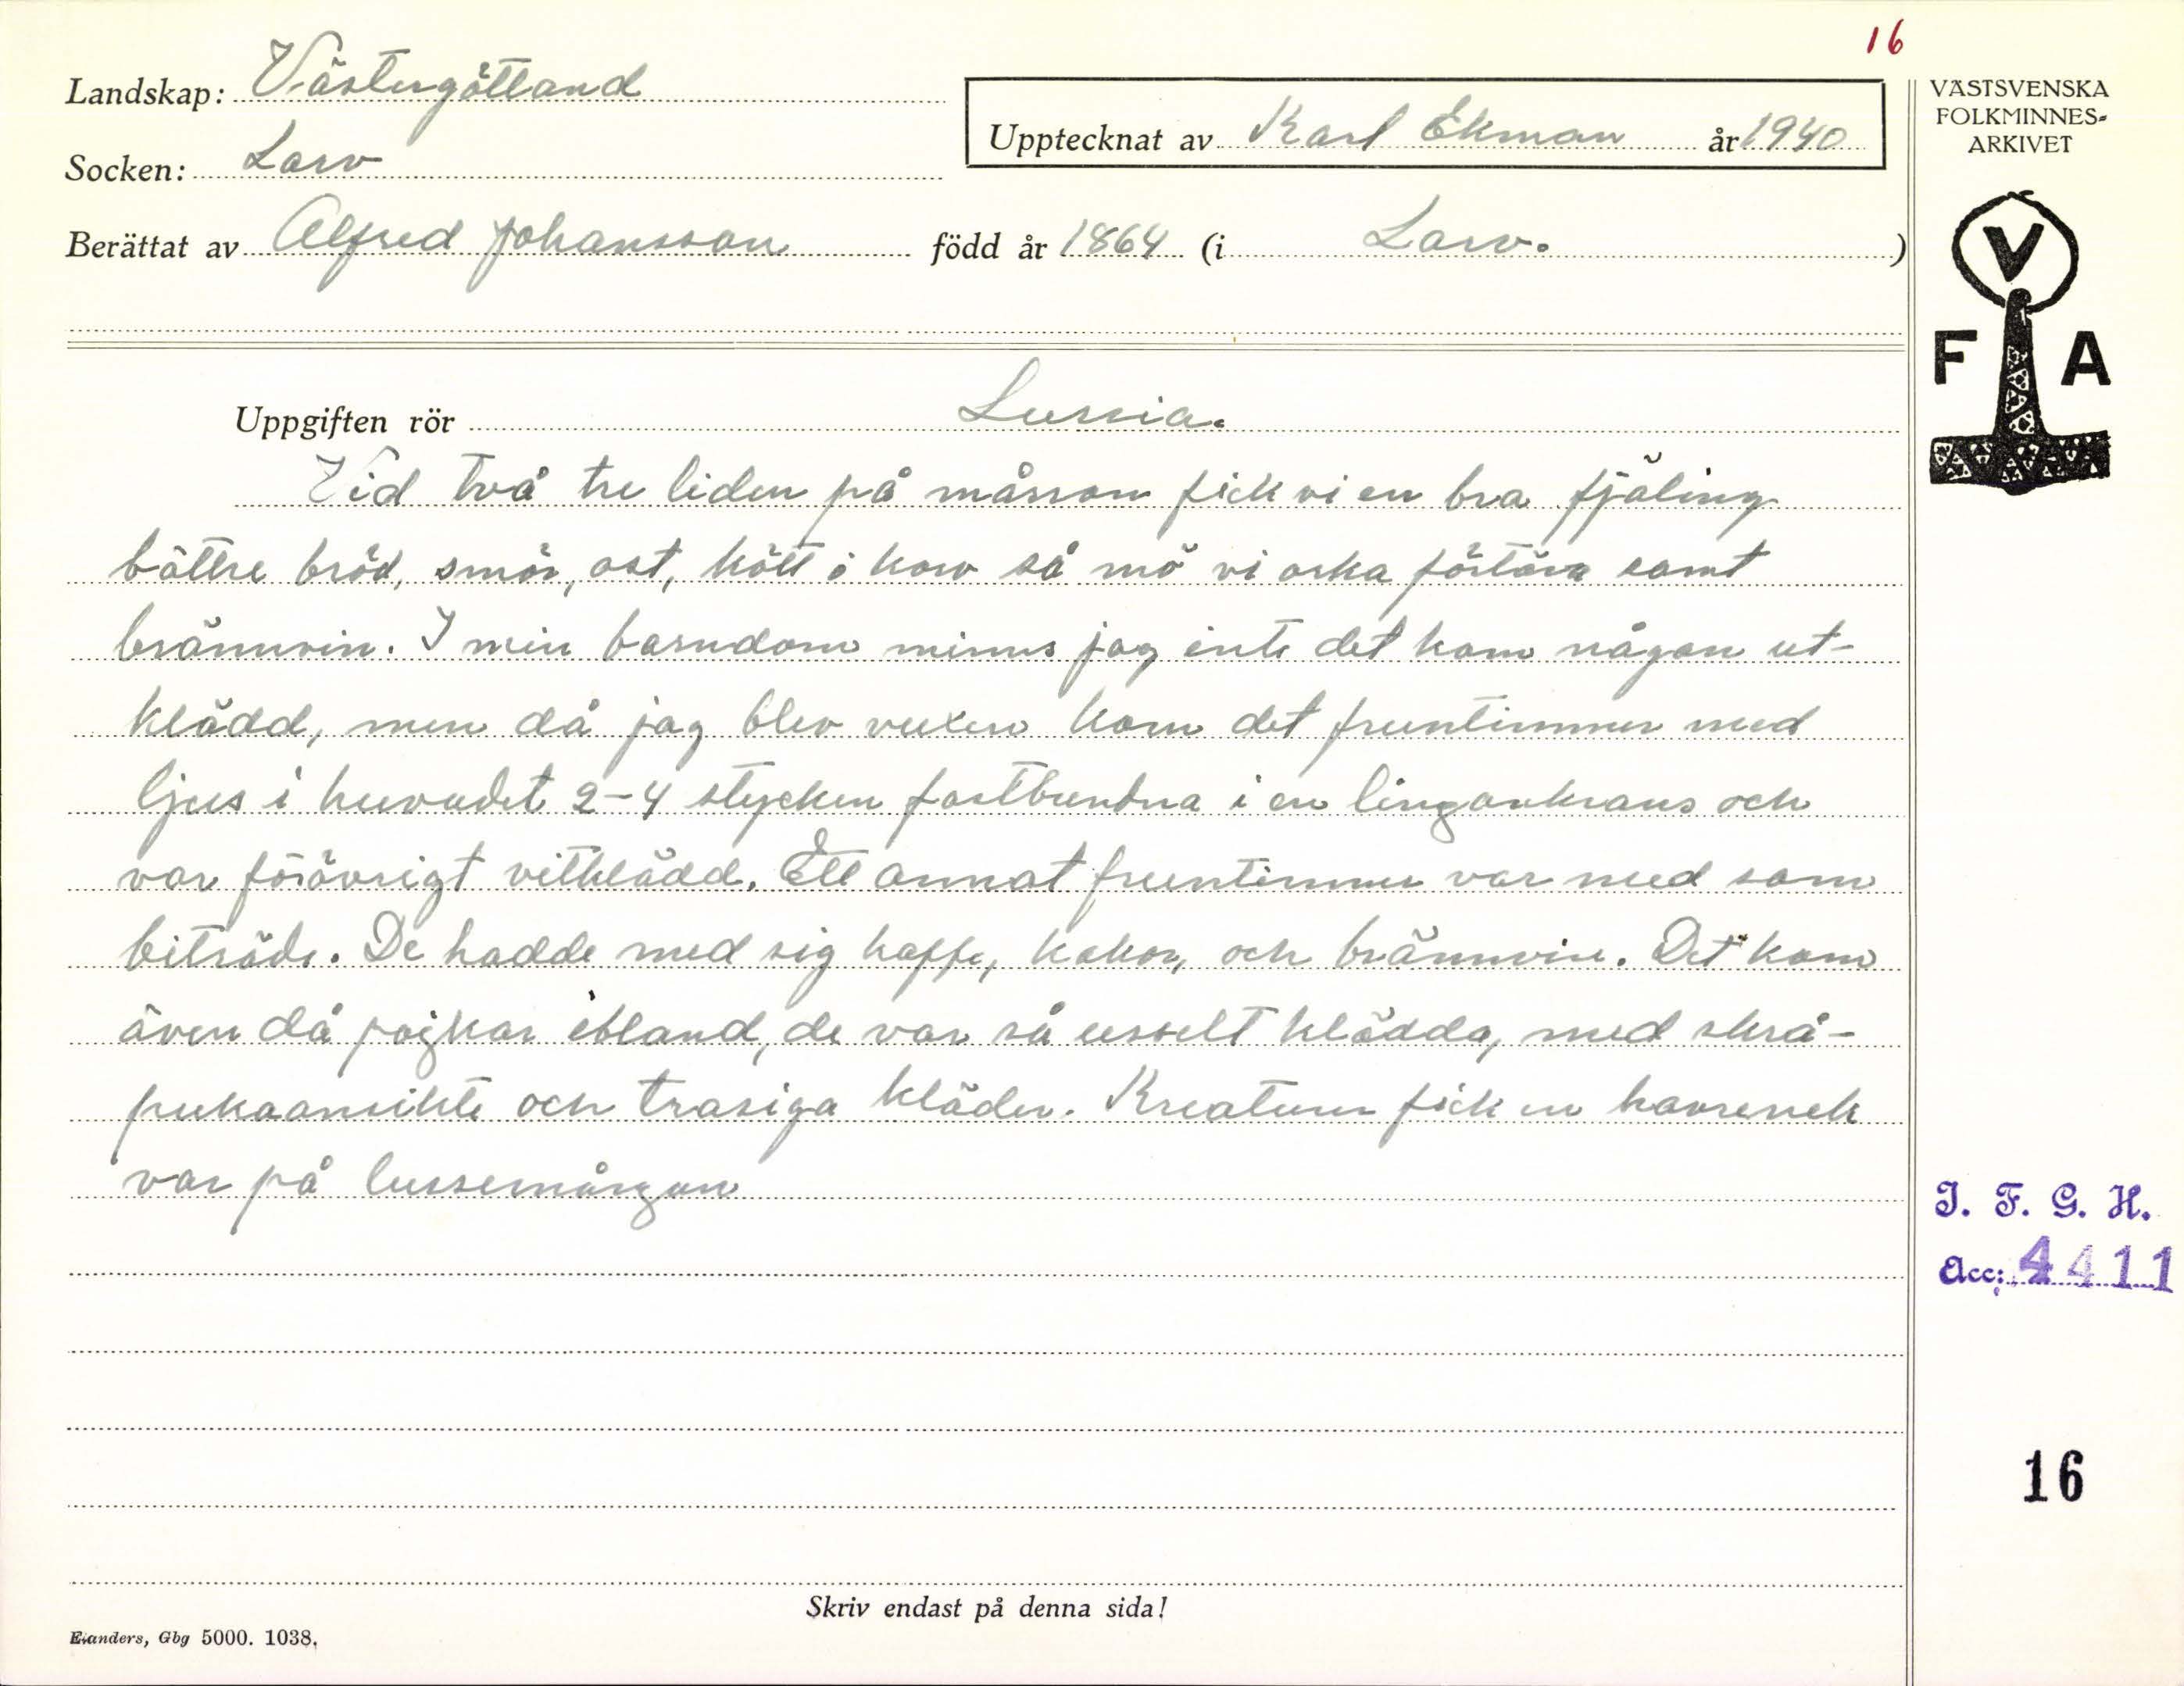 16
Landskap: Västergötland
Socken: Larv
Upptecknat av Karl Ekman år 1940
Berättat av Alfred Johansson född år 1864 (i Larv.)
VÄSTSVENSKA
FOLKMINNES-
ARKIVET
V
F A
Uppgiften rör Lussia.
Vid två tre tiden på mårron fick vi en bra fjäling
bättre bröd, smör, ost, kött å korv så mö vi orka förtära samt
brännvin. I min barndom minns jag inte det kom någon ut-
klädd, men då jag blev vuxen kom det fruntimmer med
ljus i huvudet 2-4 stycken fastbundna i en lingonkrans och
var förövrigt vitklädd. Ett annat fruntimmer var med som
biträde. De hadde med sig kaffe, kakor, och brännvin. Det kom
även då pojkar ibland, de var så uselt klädda, med skrå-
pukaansikte och trasiga kläder. Kreaturen fick en havrenek
var på lussemårgon
I. F. G. H.
Acc: 4411
16
Skriv endast på denna sida!
Elanders, Gbg 5000. 1038.